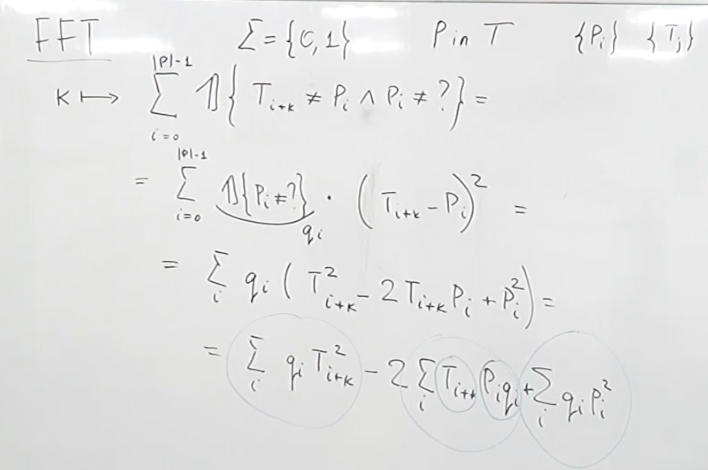 FFT Σ={0,1} P in T {P_i} {T_j}
K ↦ ∑_{i=0}^{|P|-1} 𝟙{T_{i+k} ≠ P_i ∧ P_i ≠ ?} =
= ∑_{i=0}^{|P|-1} 𝟙{P_i ≠ ?} · (T_{i+k} - P_i)^2 =
q_i
= ∑_i q_i (T_{i+k}^2 - 2T_{i+k}P_i + P_i^2) =
= ∑_i q_i T_{i+k}^2 - 2∑_i T_{i+k} P_i q_i + ∑_i q_i P_i^2